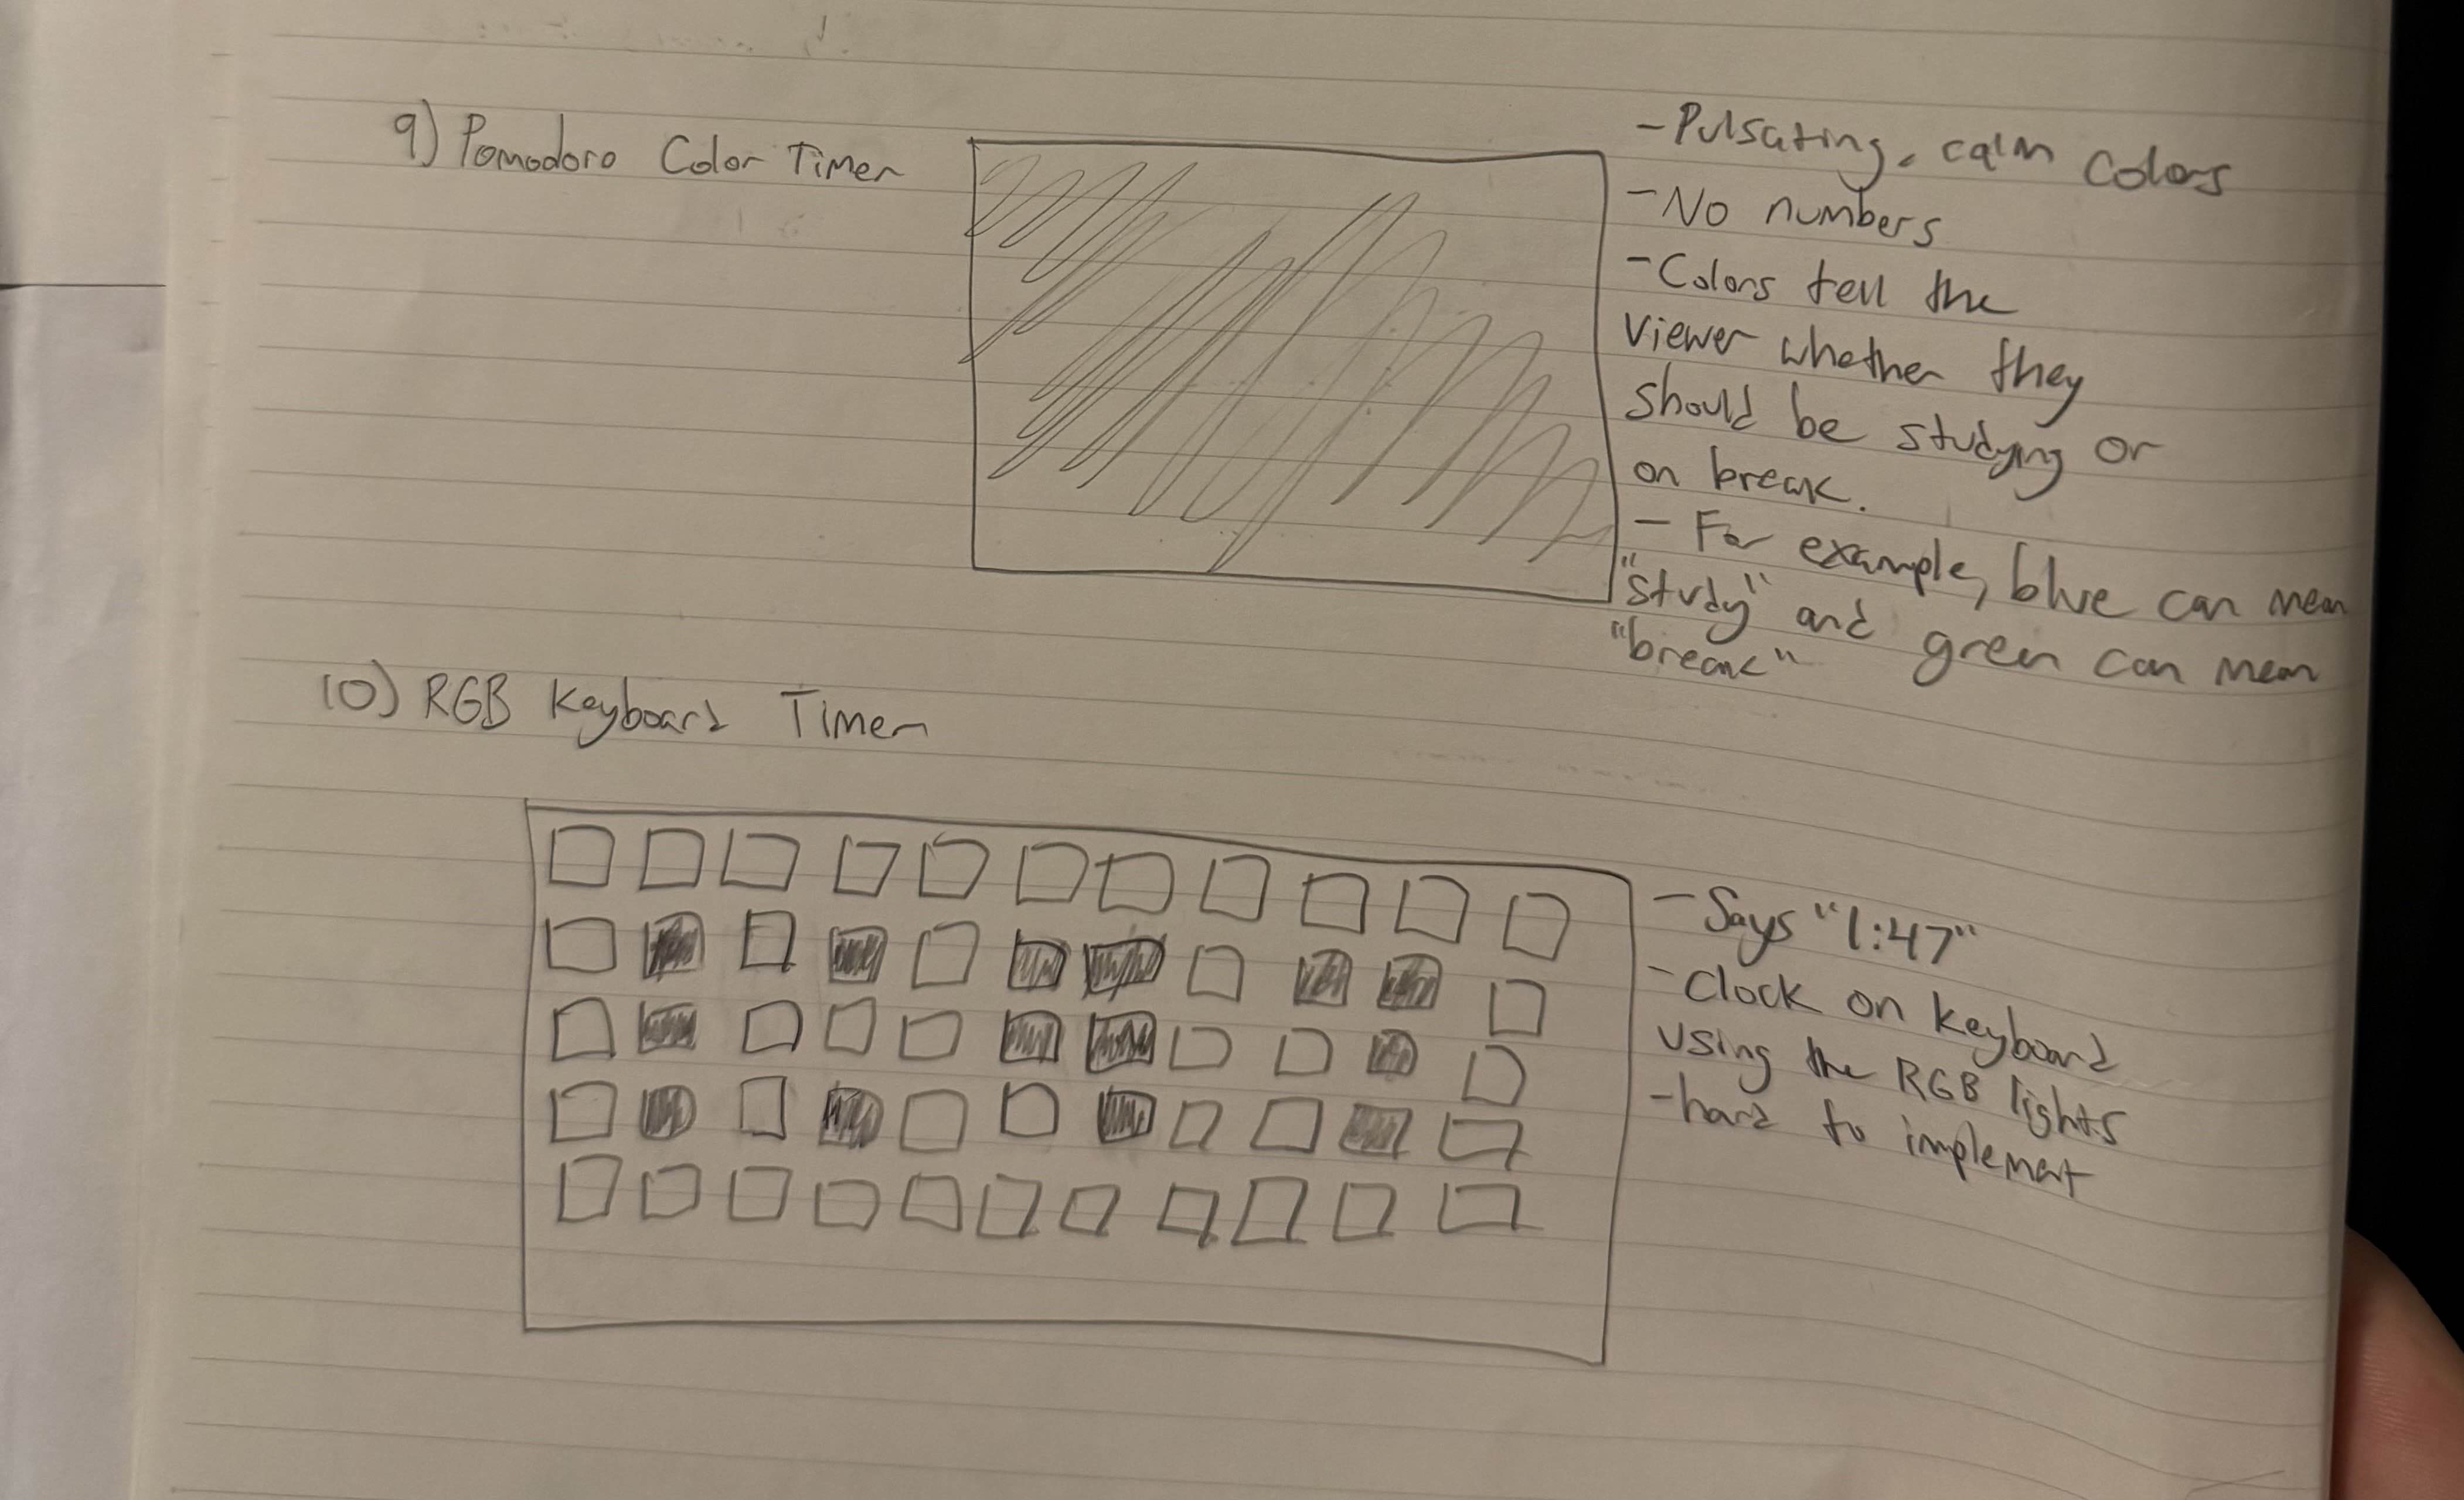 9) Pomodoro Color Timer
- Pulsating, calm colors
- No numbers
- Colors tell the
viewer whether they
should be studying or
on break.
- For example, blue can mean
"study" and green can mean
"break"
10) RGB Keyboard Timer
- Says "1:47"
- Clock on keyboard
using the RGB lights
- hard to implement